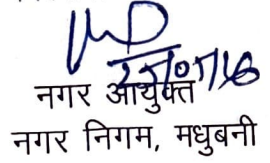 नगर आयुक्त
नगर निगम, मधुबनी